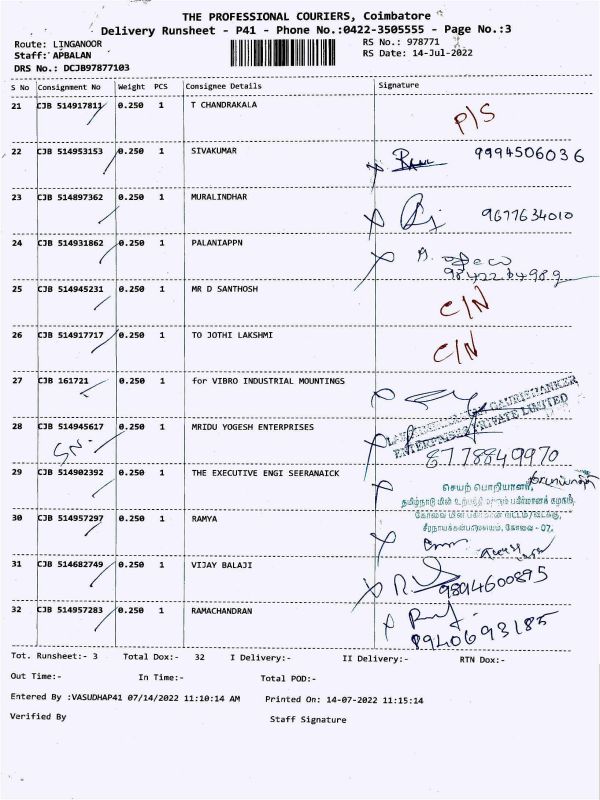 THE PROFESSIONAL COURIERS, Coimbatore
Delivery Runsheet - P41 - Phone No.:0422-3505555 - Page No.:3
Route: LINGANOOR RS No.: 978771
Staff: APBALAN RS Date: 14-Jul-2022
DRS No.: DCJB97877103
S No Consignment No Weight PCS Consignee Details Signature
21 CJB 514917811 0.250 1 T CHANDRAKALA P/S
22 CJB 514953153 0.250 1 SIVAKUMAR 9994506036
23 CJB 514897362 0.250 1 MURALINDHAR 9677634010
24 CJB 514931862 0.250 1 PALANIAPPN
25 CJB 514945231 0.250 1 MR D SANTHOSH C/N
26 CJB 514917717 0.250 1 TO JOTHI LAKSHMI C/N
27 CJB 161721 0.250 1 for VIBRO INDUSTRIAL MOUNTINGS
ENTERPRISES PRIVATE LIMITED
28 CJB 514945617 0.250 1 MRIDU YOGESH ENTERPRISES
8778849970
29 CJB 514902392 0.250 1 THE EXECUTIVE ENGI SEERANAICK
செயற் பொறியாளர்,
30 CJB 514957297 0.250 1 RAMYA
31 CJB 514682749 0.250 1 VIJAY BALAJI 9894600895
32 CJB 514957283 0.250 1 RAMACHANDRAN 8940693185
Tot. Runsheet:- 3 Total Dox:- 32 I Delivery:- II Delivery:- RTN Dox:-
Out Time:- In Time:- Total POD:-
Entered By :VASUDHAP41 07/14/2022 11:10:14 AM Printed On: 14-07-2022 11:15:14
Verified By Staff Signature